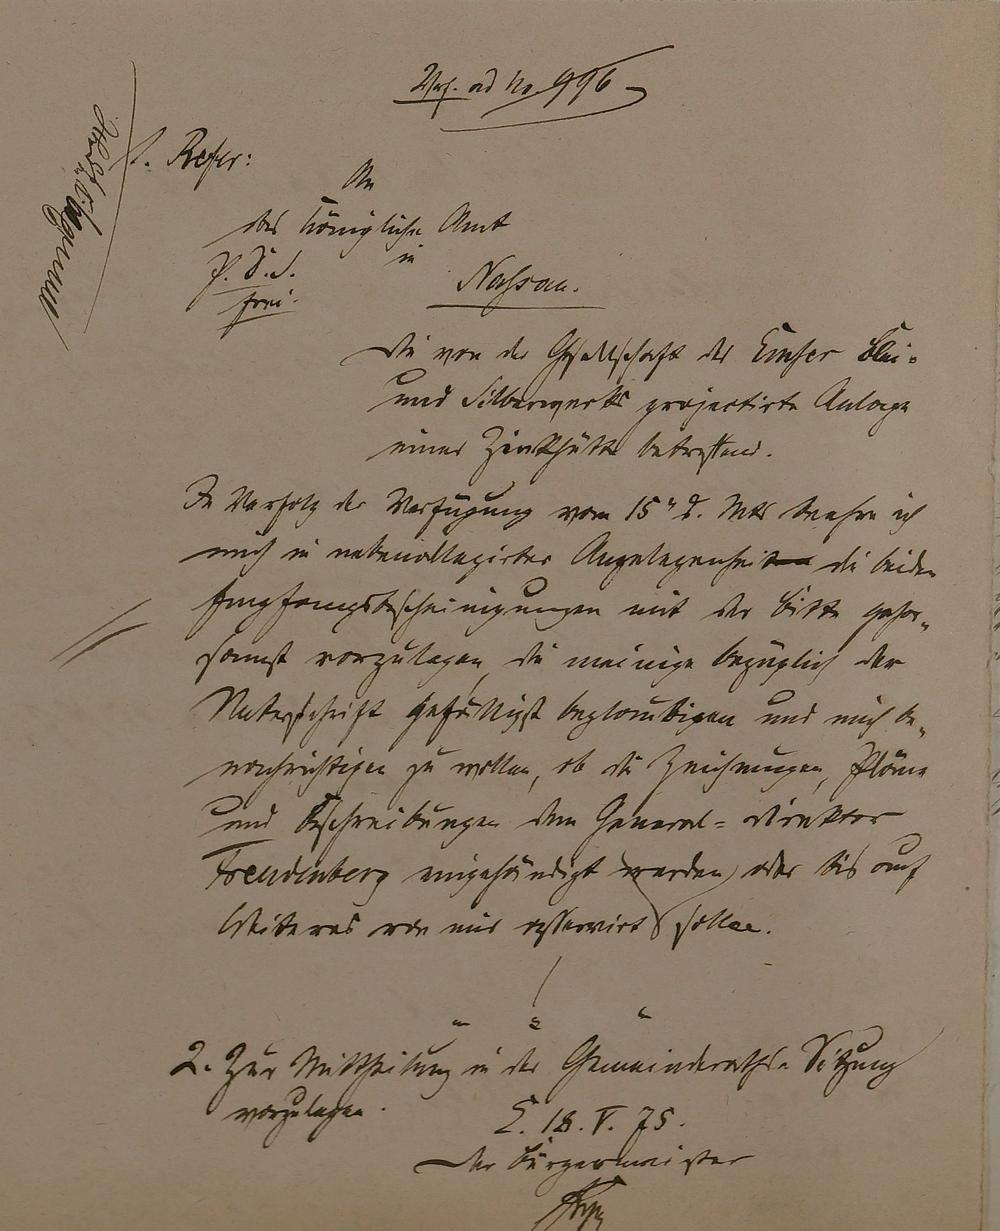 Verf. ad No. 996
1. Refer:
An
das Königliche Amt
P. D. S. in
frei. Nassau.
Die von der Gesellschaft des Emser Blei-
und Silberwerks projectirte Anlage
einer Zinkhütte betreffend.
In Verfolg der Verfügung vom 15t d. Mts beehre ich
mich in nebenallegirter Angelegenheit die beiden
Empfangsbescheinigungen mit der Bitte gehor-
samst vorzulegen, die meinige bezüglich der
Unterschrift gefälligst beglaubigen und mich be-
nachrichtigen zu wollen, ob die Zeichnungen, Pläne
und Beschreibungen dem General-Direktor
Freudenberg eingehändigt werden, oder bis auf
Weiteres von mir asservirt sollen.
2. Zur Mittheilung in der Gemeinderaths-Sitzung
vorzulegen.
E. 18. V. 75.
Der Bürgermeister